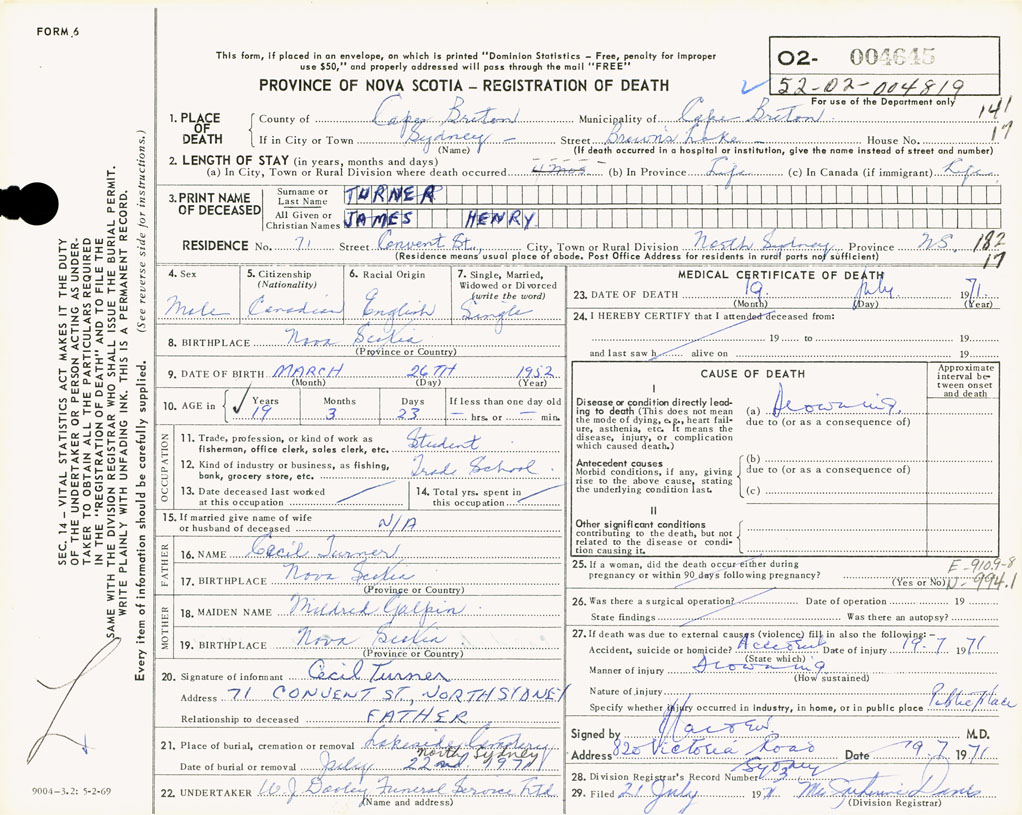 FORM 6
This form, if placed in an envelope, on which is printed "Dominion Statistics – Free, penalty for improper
use $50," and properly addressed will pass through the mail "FREE"
PROVINCE OF NOVA SCOTIA – REGISTRATION OF DEATH
02- 004645
52-02-004819
For use of the Department only
141
17
1. PLACE OF DEATH
County of Cape Breton Municipality of Cape Breton
If in City or Town Sydney – Street Brown's Lake House No.
(Name) (If death occurred in a hospital or institution, give the name instead of street and number)
2. LENGTH OF STAY (in years, months and days)
(a) In City, Town or Rural Division where death occurred (b) In Province Life (c) In Canada (if immigrant) Life
3. PRINT NAME OF DECEASED
Surname or Last Name TURNER
All Given or Christian Names JAMES HENRY
RESIDENCE No. 71 Street Convent St., City, Town or Rural Division North Sydney Province NS. 182
17
(Residence means usual place of abode. Post Office Address for residents in rural parts not sufficient)
4. Sex Male
5. Citizenship (Nationality) Canadian
6. Racial Origin English
7. Single, Married, Widowed or Divorced (write the word) Single
8. BIRTHPLACE Nova Scotia
(Province or Country)
9. DATE OF BIRTH MARCH 26TH 1952
(Month) (Day) (Year)
10. AGE in Years 19 Months 3 Days 23 If less than one day old – hrs. or – min.
OCCUPATION
11. Trade, profession, or kind of work as fisherman, office clerk, sales clerk, etc. Student
12. Kind of industry or business, as fishing, bank, grocery store, etc. Trade School
13. Date deceased last worked at this occupation
14. Total yrs. spent in this occupation
15. If married give name of wife or husband of deceased N/A
FATHER
16. NAME Cecil Turner
17. BIRTHPLACE Nova Scotia
(Province or Country)
MOTHER
18. MAIDEN NAME Mildred Galpin
19. BIRTHPLACE Nova Scotia
(Province or Country)
20. Signature of informant Cecil Turner
Address 71 CONVENT ST, NORTH SIDNEY
Relationship to deceased FATHER
21. Place of burial, cremation or removal Lakeside Cemetery
North Sydney
Date of burial or removal July 22nd 1971
22. UNDERTAKER W J Dooley Funeral Service Ltd
(Name and address)
MEDICAL CERTIFICATE OF DEATH
23. DATE OF DEATH 19. July 1971
(Month) (Day) (Year)
24. I HEREBY CERTIFY that I attended deceased from:
19 to 19
and last saw h alive on 19
CAUSE OF DEATH
Approximate interval between onset and death
I
Disease or condition directly leading to death (This does not mean the mode of dying, e.g., heart failure, asthenia, etc. It means the disease, injury, or complication which caused death.)
(a) Drowning
due to (or as a consequence of)
Antecedent causes
Morbid conditions, if any, giving rise to the above cause, stating the underlying condition last.
(b)
due to (or as a consequence of)
(c)
II
Other significant conditions contributing to the death, but not related to the disease or condition causing it.
25. If a woman, did the death occur either during pregnancy or within 90 days following pregnancy? (Yes or No)
E-910.9-8
N-994.1
26. Was there a surgical operation? Date of operation 19
State findings Was there an autopsy?
27. If death was due to external causes (violence) fill in also the following:–
Accident, suicide or homicide? Accident Date of injury 19-7-1971
(State which)
Manner of injury Drowning
(How sustained)
Nature of injury
Specify whether injury occurred in industry, in home, or in public place Public Place
Signed by M.D.
Address 820 Victoria Road Date 19.7.1971
Sydney
28. Division Registrar's Record Number 3
29. Filed 21 July 1971 Davis
(Division Registrar)
SEC. 14 – VITAL STATISTICS ACT MAKES IT THE DUTY
OF THE UNDERTAKER OR PERSON ACTING AS UNDER-
TAKER TO OBTAIN ALL THE PARTICULARS REQUIRED
IN THE "REGISTRATION OF DEATH" AND TO FILE THE
SAME WITH THE DIVISION REGISTRAR WHO SHALL ISSUE THE BURIAL PERMIT.
WRITE PLAINLY WITH UNFADING INK. THIS IS A PERMANENT RECORD.
Every item of information should be carefully supplied. (See reverse side for instructions.)
9004-3.2: 5-2-69